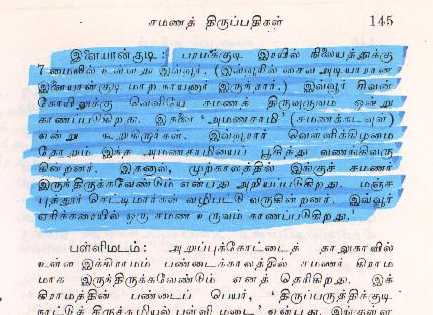 சமணத் திருப்பதிகள் 145
இளையான்குடி: பரமக்குடி இரயில் நிலையத்துக்கு
7 மைலில் உள்ளது இவ்வூர். (இவ்வூரில் சைவ அடியாரான
இளையான்குடி மாற நாயனார் இருந்தார்.) இவ்வூர் சிவன்
கோயிலுக்கு வெளியே சமணத் திருவுருவம் ஒன்று
காணப்படுகிறது. இதனை ‘அமணசாமி’ (சமணக்கடவுள்)
என்று கூறுகிறார்கள். இவ்வூரார் வெள்ளிக்கிழமை
தோறும் இந்த அமணசாமியைப் பூசித்து வணங்கிவரு
கின்றனர். இதனால், முற்காலத்தில் இங்குச் சமணர்
இருந்திருக்கவேண்டும் என்பது அறியப்படுகிறது. மஞ்ச
புத்தூர் செட்டிமார்கள் வழிபட்டு வருகின்றனர். இவ்வூர்
ஏரிக்கரையில் ஒரு சமண உருவம் காணப்படுகிறது.¹
பள்ளிமடம்: அறுப்புக்கோட்டைத் தாலுகாவில்
உள்ள இக்கிராமம் பண்டைக்காலத்தில் சமணர் கிராம
மாக இருந்திருக்கவேண்டும் எனத் தெரிகிறது. இக்
கிராமத்தின் பண்டைப் பெயர், ‘திருப்பருத்திக்குடி
நாட்டுத் திருச்சுழியல் பள்ளி மடை’ என்பது. இங்குள்ள